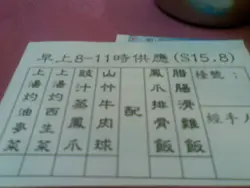 早上8-11時供應(S15.8)
檯號:
經手
腊腸滑雞飯
鳳爪排骨飯
配
山竹牛肉球
豉汁蒸鳳爪
上湯灼西生菜
上湯灼油麥菜